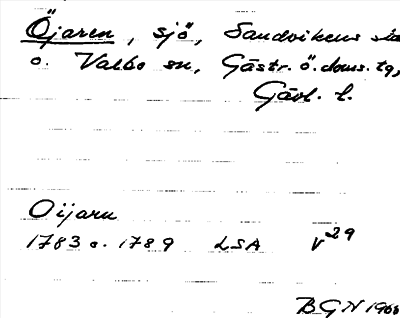 Öjaren, sjö, Sandvikens sta
o. Valbo sn, Gästr. ö. doms. tg,
Gävl. l.
Oijarn
1783 o. 1789 LSA V29
BGN 1968